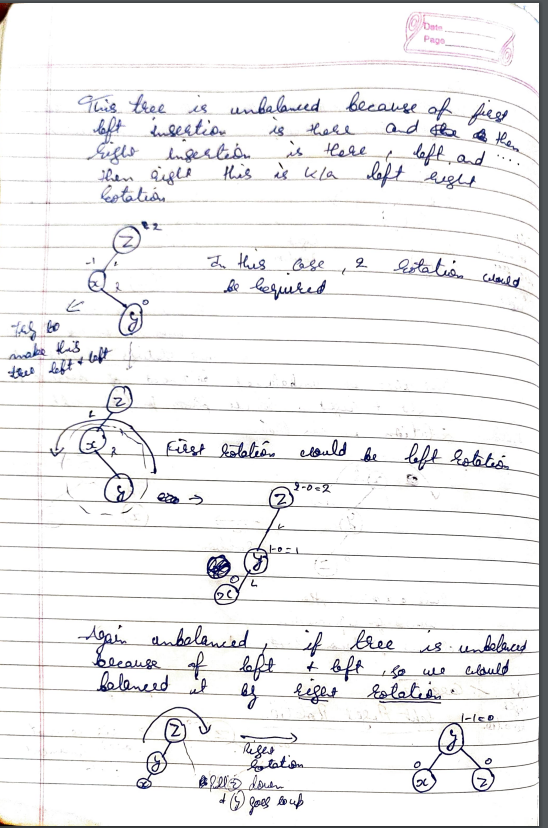 Date
Page
This tree is unbalanced because of first
left insertion is there and then
right insertion is there, left and ....
then right this is k/a left right
rotation
Z 2
-1 L
x 2
y 0
In this case, 2 rotation would
be required
Try to
make this
tree left + left
Z
L
x 2
y
First rotation would be left rotation
Z 2-0=2
L
y 1-0=1
x 0 L
Again unbalanced, if tree is unbalanced
because of left + left, so we would
balanced it by right rotation.
Z
y
x
Right
rotation
down
+ y goes up
1-1=0
y
0 0
x Z